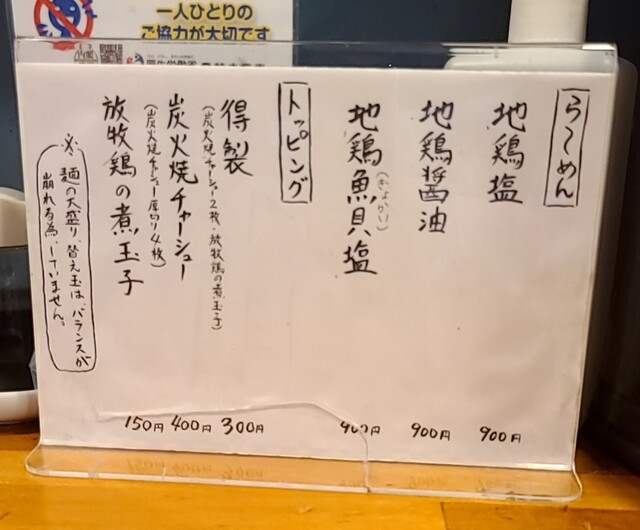 一人ひとりの
ご協力が大切です
らーめん
地鶏塩 900円
地鶏醤油 900円
地鶏魚貝塩 900円
(ぎょかい)
トッピング
得製 300円
(炭火焼チャーシュー2枚・放牧鶏の煮玉子)
炭火焼チャーシュー 400円
(炭火焼チャーシュー厚切り4枚)
放牧鶏の煮玉子 150円
※
麺の大盛り、替え玉は、バランスが
崩れる為、していません。